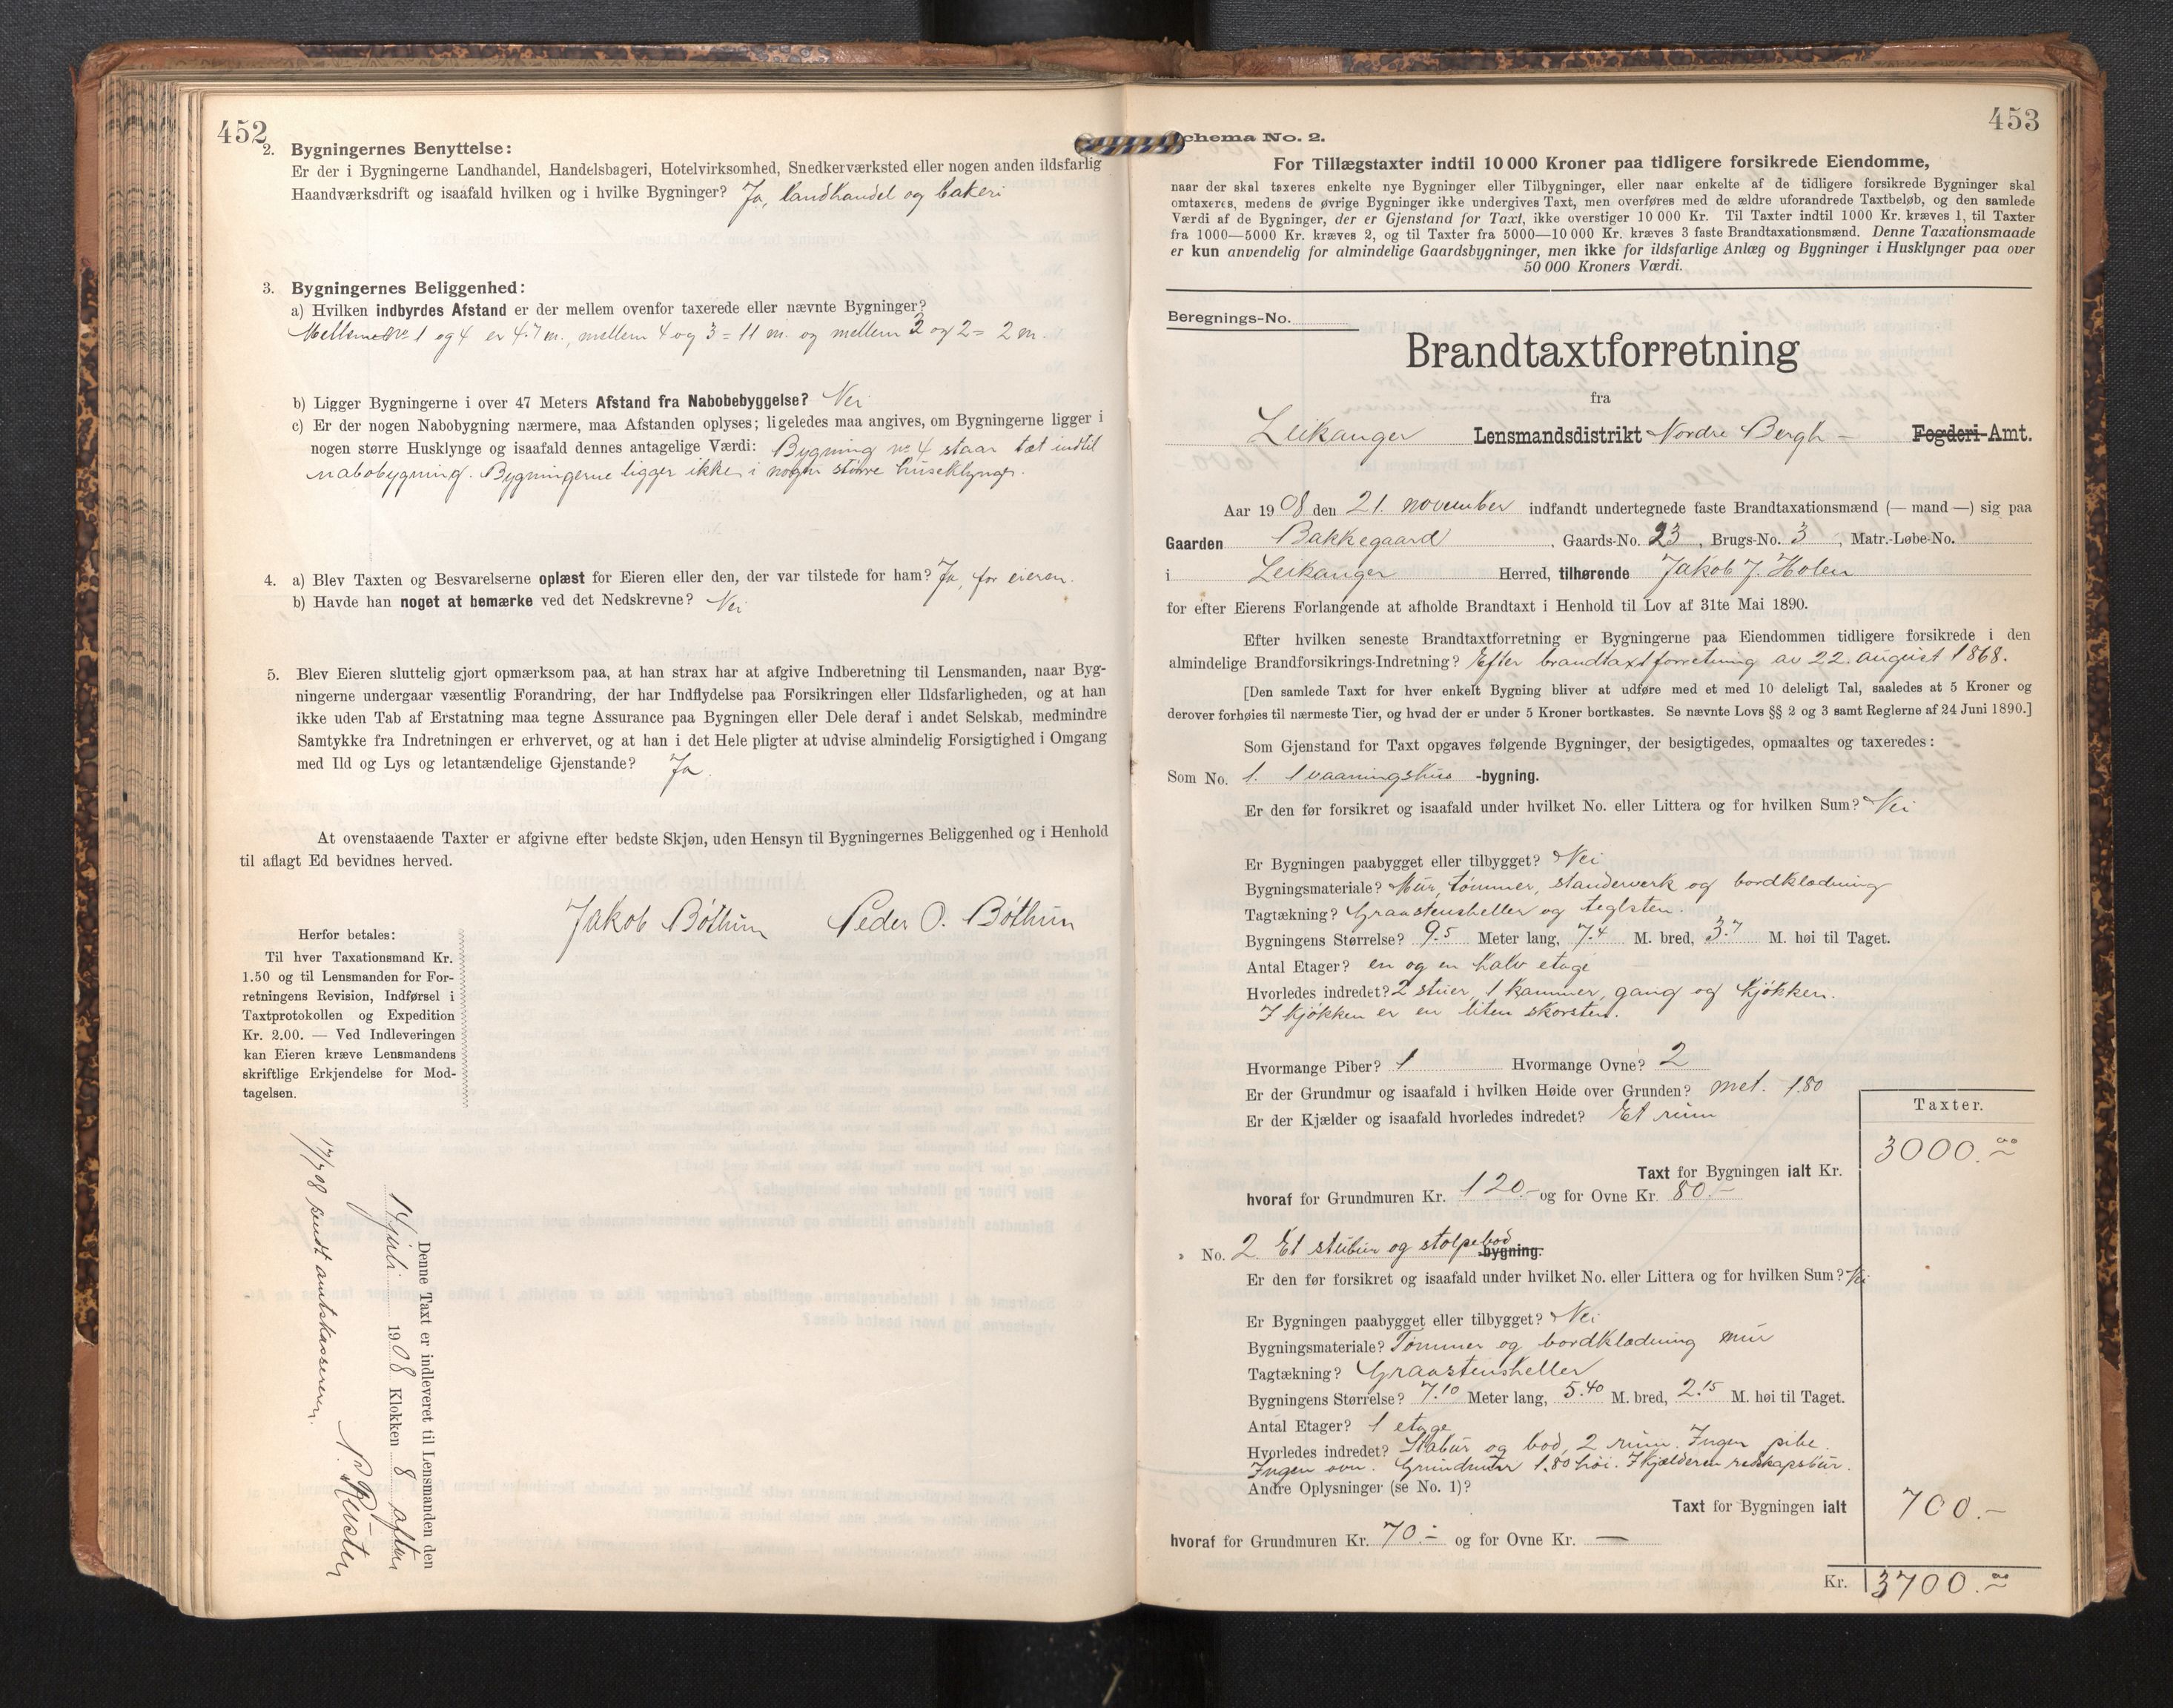 452
2. Bygningernes Benyttelse:
Er der i Bygningerne Landhandel, Handelsbageri, Hotelvirksomhed, Snedkerværksted eller nogen anden ildsfarlig
Haandværksdrift og isaafald hvilken og i hvilke Bygninger? Ja, landhandel og bakeri
3. Bygningernes Beliggenhed:
a) Hvilken indbyrdes Afstand er der mellem ovenfor taxerede eller nævnte Bygninger?
Mellem No 1 og 4 er 4.7 m., mellem 4 og 3 = 11 m. og mellem 3 og 2 = 2 m.
b) Ligger Bygningerne i over 47 Meters Afstand fra Nabobebyggelse? Nei
c) Er der nogen Nabobygning nærmere, maa Afstanden oplyses; ligeledes maa angives, om Bygningerne ligger i
nogen større Husklynge og isaafald dennes antagelige Værdi: Bygning no 4 staar tæt indtil
nabobygning. Bygningerne ligger ikke i nogen større huseklynge.
4. a) Blev Taxten og Besvarelserne oplæst for Eieren eller den, der var tilstede for ham? Ja, for eieren.
b) Havde han noget at bemærke ved det Nedskrevne? Nei
5. Blev Eieren sluttelig gjort opmærksom paa, at han strax har at afgive Indberetning til Lensmanden, naar Byg-
ningerne undergaar væsentlig Forandring, der har Indflydelse paa Forsikringen eller Ildsfarligheden, og at han
ikke uden Tab af Erstatning maa tegne Assurance paa Bygningen eller Dele deraf i andet Selskab, medmindre
Samtykke fra Indretningen er erhvervet, og at han i det Hele pligter at udvise almindelig Forsigtighed i Omgang
med Ild og Lys og letantændelige Gjenstande? Ja
At ovenstaaende Taxter er afgivne efter bedste Skjøn, uden Hensyn til Bygningernes Beliggenhed og i Henhold
til aflagt Ed bevidnes herved.
Jakob Bøthun Peder O. Bøthun
Herfor betales:
Til hver Taxationsmand Kr.
1.50 og til Lensmanden for For-
retningens Revision, Indførsel i
Taxtprotokollen og Expedition
Kr. 2.00. — Ved Indleveringen
kan Eieren kræve Lensmandens
skriftlige Erkjendelse for Mod-
tagelsen.
Denne Taxt er indleveret til Lensmanden den
14 juli 1908 Klokken 8 aften
N. Ruster
17/7 08 sendt amtskassereren.
453
Schema No. 2.
For Tillægstaxter indtil 10 000 Kroner paa tidligere forsikrede Eiendomme,
naar der skal taxeres enkelte nye Bygninger eller Tilbygninger, eller naar enkelte af de tidligere forsikrede Bygninger skal
omtaxeres, medens de øvrige Bygninger ikke undergives Taxt, men overføres med de ældre uforandrede Taxtbeløb, og den samlede
Værdi af de Bygninger, der er Gjenstand for Taxt, ikke overstiger 10 000 Kr. Til Taxter indtil 1000 Kr. kræves 1, til Taxter
fra 1000—5000 Kr. kræves 2, og til Taxter fra 5000—10 000 Kr. kræves 3 faste Brandtaxationsmænd. Denne Taxationsmaade
er kun anvendelig for almindelige Gaardsbygninger, men ikke for ildsfarlige Anlæg og Bygninger i Husklynger paa over
50 000 Kroners Værdi.
Beregnings-No.
Brandtaxtforretning
fra
Leikanger Lensmandsdistrikt Nordre Bergh – Fogderi-Amt.
Aar 1908 den 21. november indfandt undertegnede faste Brandtaxationsmænd (— mand —) sig paa
Gaarden Bakkegaard, Gaards-No. 23, Brugs-No. 3, Matr.-Løbe-No.
i Leikanger Herred, tilhørende Jakob J. Holen
for efter Eierens Forlangende at afholde Brandtaxt i Henhold til Lov af 31te Mai 1890.
Efter hvilken seneste Brandtaxtforretning er Bygningerne paa Eiendommen tidligere forsikrede i den
almindelige Brandforsikrings-Indretning? Efter brandtaxtforretning av 22. august 1868.
[Den samlede Taxt for hver enkelt Bygning bliver at udføre med et med 10 deleligt Tal, saaledes at 5 Kroner og
derover forhøies til nærmeste Tier, og hvad der er under 5 Kroner bortkastes. Se nævnte Lovs §§ 2 og 3 samt Reglerne af 24 Juni 1890.]
Som Gjenstand for Taxt opgaves følgende Bygninger, der besigtigedes, opmaaltes og taxeredes:
Som No. 1. 1 vaaningshus -bygning.
Er den før forsikret og isaafald under hvilket No. eller Littera og for hvilken Sum? Nei
Er Bygningen paabygget eller tilbygget? Nei
Bygningsmateriale? Mur, tømmer, standerverk og bordklædning
Tagtækning? Graastensheller og teglsten.
Bygningens Størrelse? 9.5 Meter lang, 7.4 M. bred, 3.7 M. høi til Taget.
Antal Etager? en og en halv etage
Hvorledes indredet? 2 stuer, 1 kammer, gang og kjøkken.
I kjøkken er en liten skorsten.
Hvormange Piber? 1 Hvormange Ovne? 2
Er der Grundmur og isaafald i hvilken Høide over Grunden? met. 1.80
Er der Kjælder og isaafald hvorledes indredet? Et rum
Taxter.
Taxt for Bygningen ialt Kr. 3000.00
hvoraf for Grundmuren Kr. 120.- og for Ovne Kr. 80.-
» No. 2. Et stubur og stolpebod -bygning.
Er den før forsikret og isaafald under hvilket No. eller Littera og for hvilken Sum? Nei
Er Bygningen paabygget eller tilbygget? Nei
Bygningsmateriale? Tømmer og bordklædning mur
Tagtækning? Graastensheller
Bygningens Størrelse? 7.10 Meter lang, 5.40 M. bred, 2.15 M. høi til Taget.
Antal Etager? 1 etage
Hvorledes indredet? Stabur og bod, 2 rum. Ingen pibe.
Ingen ovn. Grundmur 1.80 høi. I kjælderen redskapsbur.
Andre Oplysninger (se No. 1)?
Taxt for Bygningen ialt 700.-
hvoraf for Grundmuren Kr. 70.- og for Ovne Kr. —
Kr. 3700.00